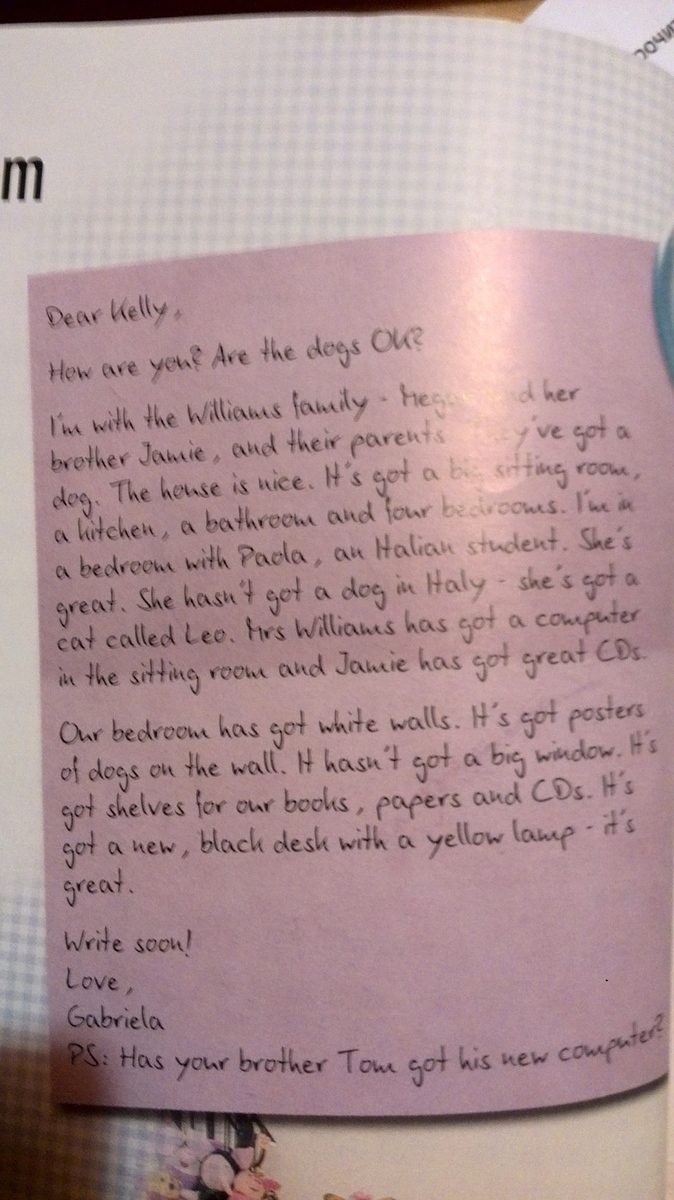 m
Dear Kelly,
How are you? Are the dogs OK?
I'm with the Williams family - and her
brother Jamie, and their parents They've got a
dog. The house is nice. It's got a big sitting room,
a kitchen, a bathroom and four bedrooms. I'm in
a bedroom with Paola, an Italian student. She's
great. She hasn't got a dog in Italy - she's got a
cat called Leo. Mrs Williams has got a computer
in the sitting room and Jamie has got great CDs.
Our bedroom has got white walls. It's got posters
of dogs on the wall. It hasn't got a big window. It's
got shelves for our books, papers and CDs. It's
got a new, black desk with a yellow lamp - it's
great.
Write soon!
Love,
Gabriela
PS: Has your brother Tom got his new computer?